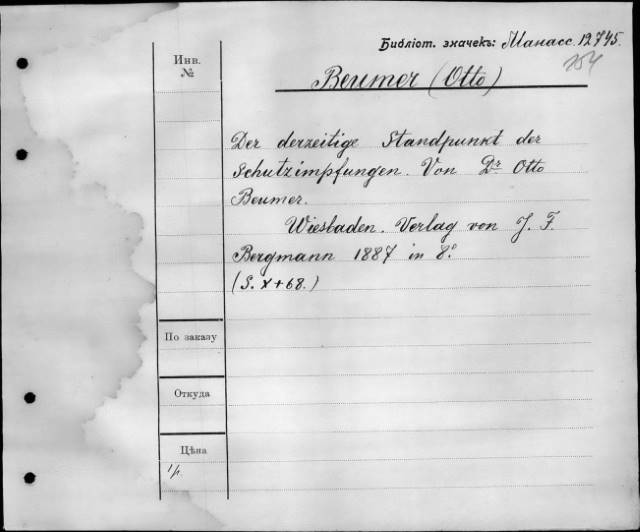 Библіот. значекъ: Манасс. 12745.
254
Инв.
№
Beumer (Otto)
Der derzeitige Standpunkt der
Schutzimpfungen. Von Dr Otto
Beumer.
Wiesbaden. Verlag von J. F.
Bergmann 1887 in 8º
(S. X+68.)
По заказу
Откуда
Цѣна